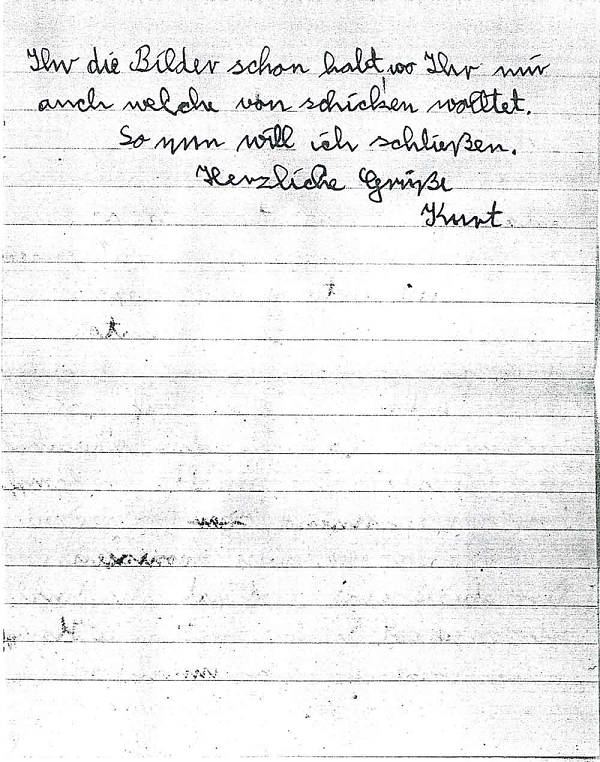 Ihr die Bilder schon habt, wo Ihr mir
auch welche von schicken wolltet.
So nun will ich schließen.
Herzliche Grüße
Kurt